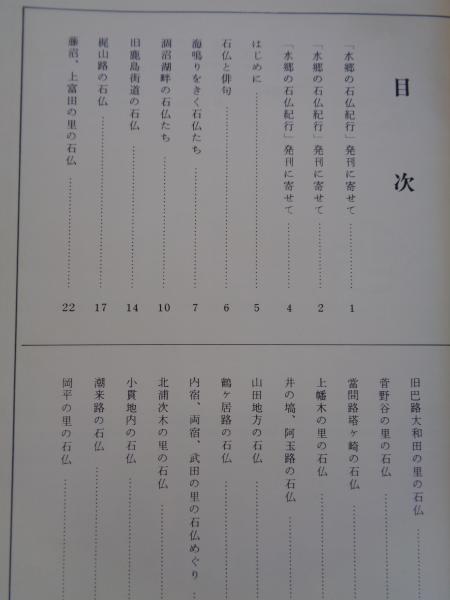 目次
「水郷の石仏紀行」発刊に寄せて……………1
「水郷の石仏紀行」発刊に寄せて……………2
「水郷の石仏紀行」発刊に寄せて……………4
はじめに……………5
石仏と俳句……………6
海鳴りをきく石仏たち……………7
涸沼湖畔の石仏たち……………10
旧鹿島街道の石仏……………14
梶山路の石仏……………17
藤沼、上富田の里の石仏……………22
旧巴路大和田の里の石仏……………
菅野谷の里の石仏……………
當間路塔ヶ崎の石仏……………
上幡木の里の石仏……………
井の塙、阿玉路の石仏……………
山田地方の石仏……………
鶴ヶ居路の石仏……………
内宿、両宿、武田の里の石仏めぐり……………
北浦次木の里の石仏……………
小貫地内の石仏……………
潮来路の石仏……………
岡平の里の石仏……………